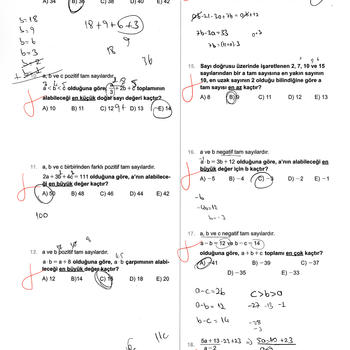 A) 34 B) 36 C) 38 D) 40 E) 42
b=18
b=9
b=6
b=3
18+9+6+3
18
9
3b
a, b ve c pozitif tam sayılardır.
olduğuna göre, + 2b + c toplamının
alabileceği en küçük doğal sayı değeri kaçtır?
A) 10 B) 11 C) 12 D) 13 E) 14
11. a, b ve c birbirinden farklı pozitif tam sayılardır.
2a + 3b + 4c = 111 olduğuna göre, a'nın alabilece-
ği en büyük değer kaçtır?
A) 50 B) 48 C) 46 D) 44 E) 42
100
13. a ve b pozitif tam sayılardır.
a · b = a + 8 olduğuna göre, a·b çarpımının alabi-
leceği en büyük değer kaçtır?
A) 12 B) 14 C) 16 D) 18 E) 20
11c
7b-30=33
15. Sayı doğrusu üzerinde işaretlenen 2, 7, 10 ve 15
sayılarından bir a tam sayısına en yakın sayının
10, en uzak sayının 2 olduğu bilindiğine göre a
tam sayısı en az kaçtır?
A) 8 B) 9 C) 11 D) 12 E) 13
16. a ve b negatif tam sayılardır.
a · b = 3b + 12 olduğuna göre, a'nın alabileceği en
büyük değer için b kaçtır?
A) –5 B) –4 C) –3 D) –2 E) –1
-b
b=-3
17. a, b ve c negatif tam sayılardır.
a – b = 12 ve b – c = 14
olduğuna göre, a + b + c toplamı en çok kaçtır?
A) –41 B) –39 C) –37
D) –35 E) –33
a-c=26
a-b=12
b-c=14
c>b>a
-27 -13 -1
-28
18.